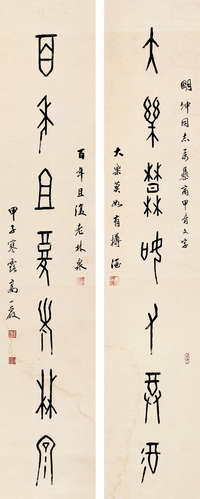 明紳同志摹商甲骨文字
大樂莫如有尊酒
大樂莫如有樽酒
百年且復老林泉
百年且復老林泉
甲子寒露高一